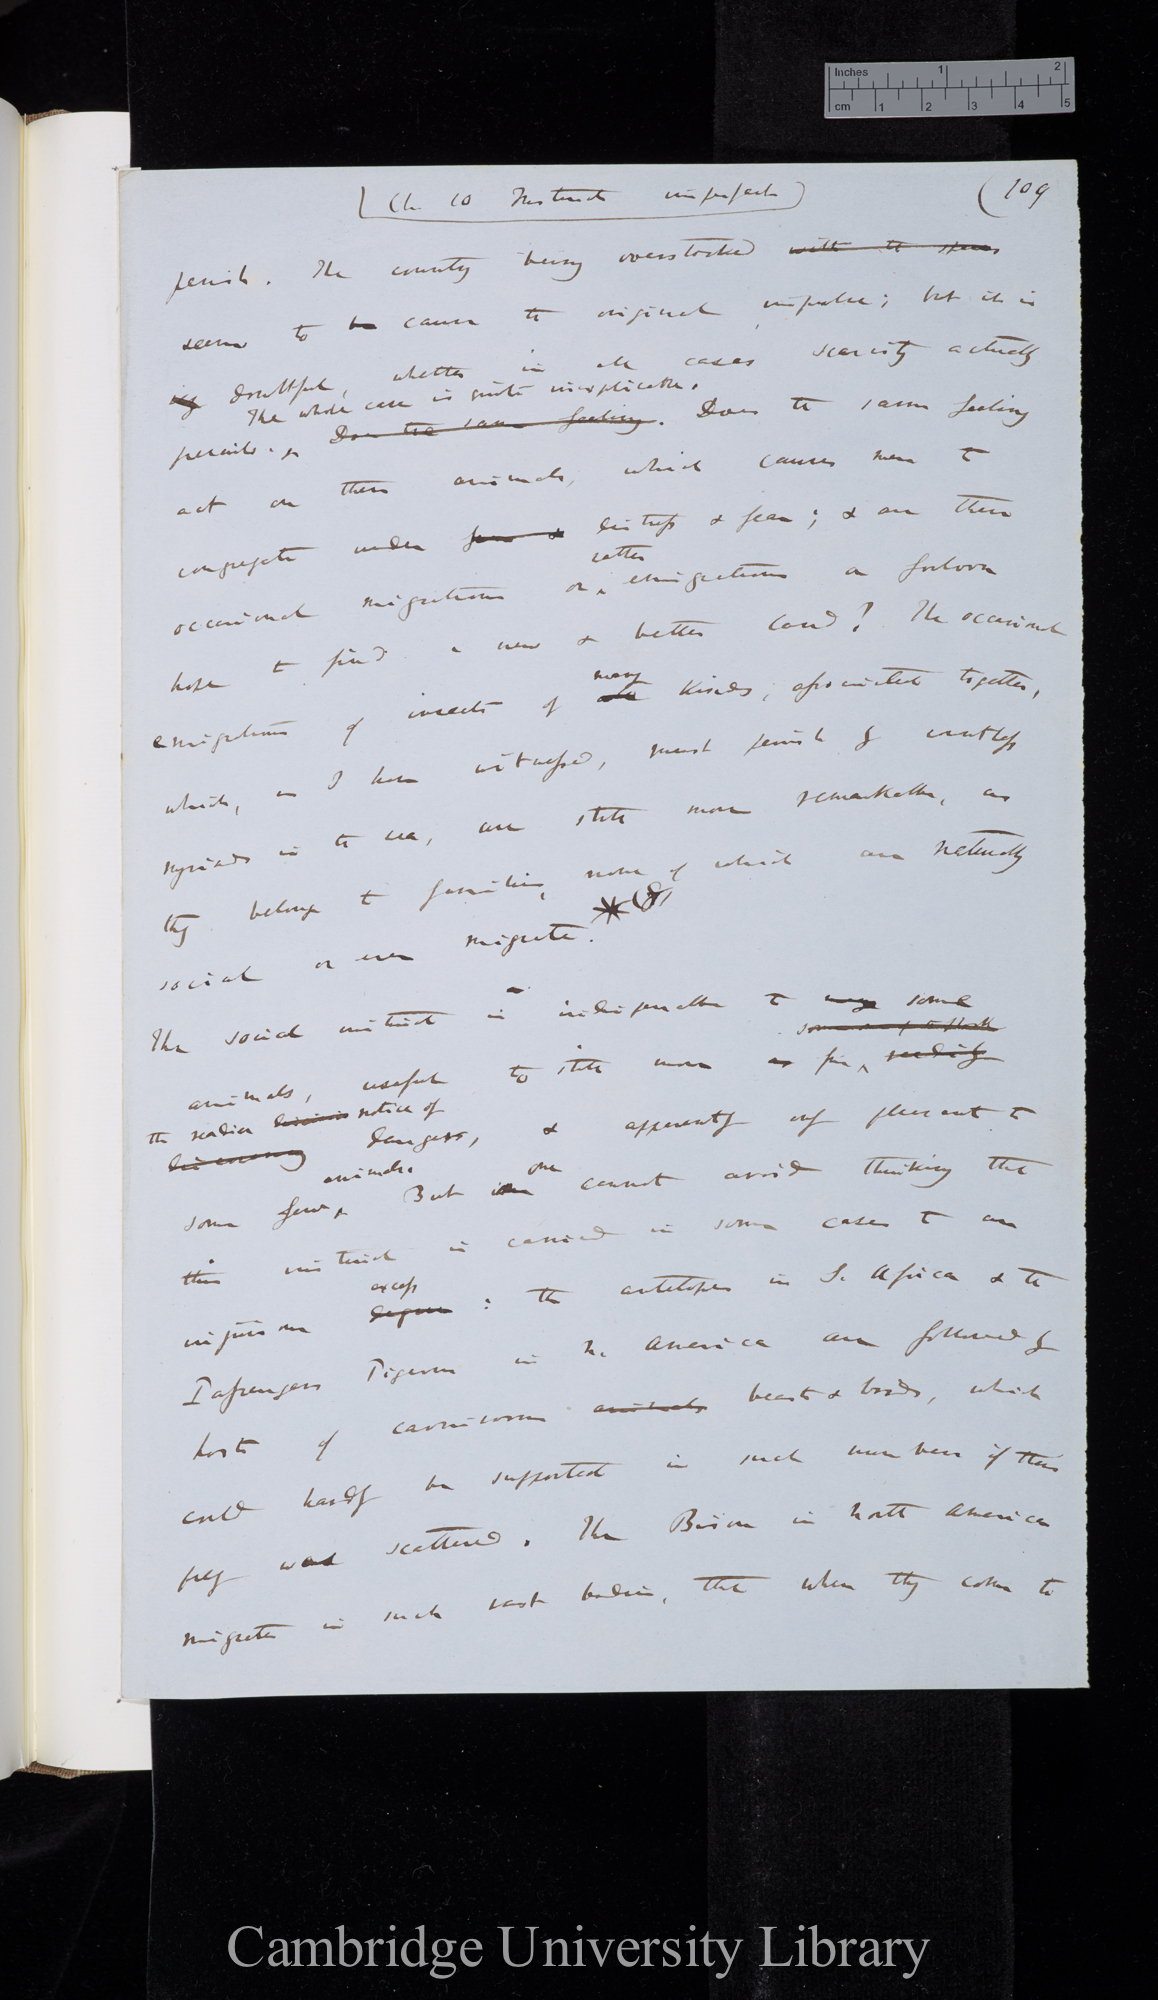 Inches 1 2
cm 1 2 3 4 5
(Ch. 10 Instinct imperfect)
(109
perish. The country being overstocked with the species
seems to be cause the original impulse; but it is
doubtful, whether in all cases scarcity actually
The whole case is quite inexplicable.
prevails. Does the same feeling. Does the same feeling
act on these animals, which causes men to
congregate under fear & distress & fear; & are these
rather
occasional migrations or emigrations a forlorn
hope to find a new & better land? The occasional
many
emigrations of insects of all kinds, associated together,
which, as I have witnessed, must perish by countless
myriads in the sea, are still more remarkable, as
they belong to families, none of which are naturally
social or even migrate.
The social instinct is indispensable to many some
animals, useful to still more as for readily
the readier notice of
discovering dangers, & apparently only pleasant to
animals. one
some few. But cannot avoid thinking that
this instinct is carried in some cases to an
excess
injurious degree: the antelopes in S. Africa & the
Passenger Pigeons in N. America are followed by
hosts of carnivorous animals beasts & birds, which
could hardly be supported in such numbers if their
prey was scattered. The Bison in North America
migrates in such vast bodies, that when they come to
Cambridge University Library